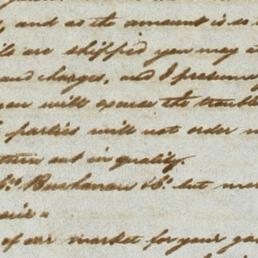 and as the amount is so
are shipped you may
and charges, and I presume
you will excuse the trouble
parties will not order
out in quality.
Buchanan & Co. but
of our market for your